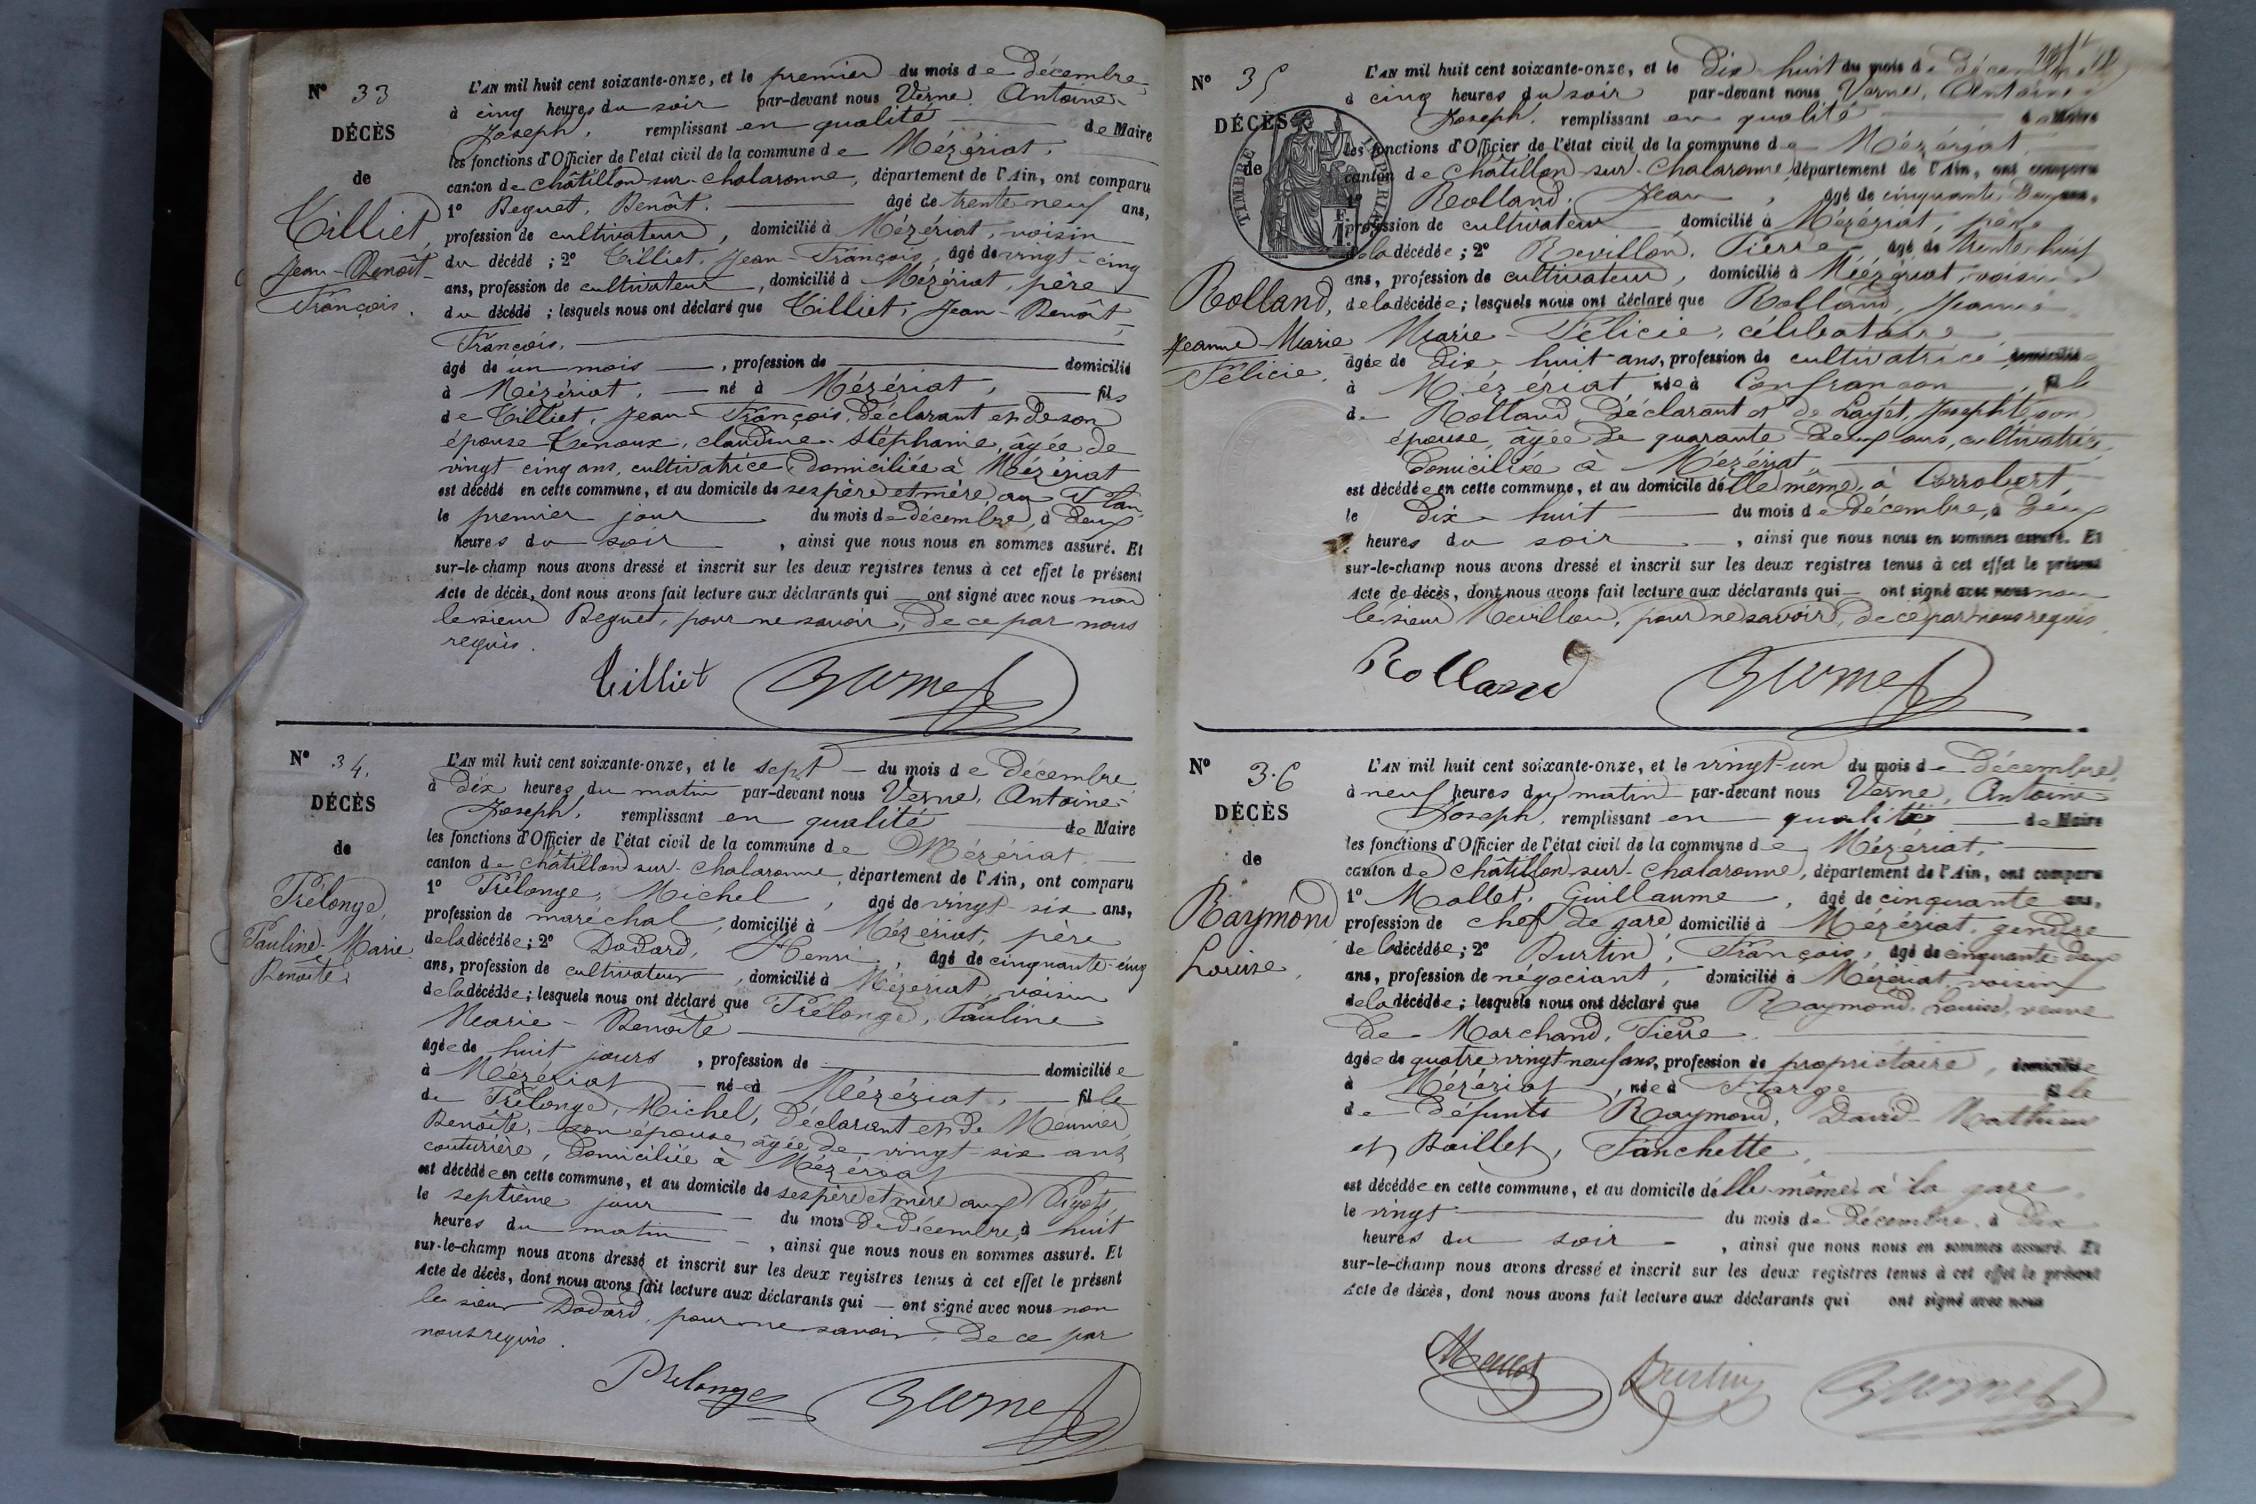 N° 33
DÉCÈS
de
Tilliet,
Jean-Benoît
François.
L'AN mil huit cent soixante-onze, et le premier du mois de Décembre,
à cinq heures du soir par-devant nous Verne, Antoine
Joseph, remplissant en qualité de Maire
les fonctions d'Officier de l'état civil de la commune de Mézériat,
canton de Châtillon sur Chalaronne, département de l'Ain, ont comparu
1° Beguet, Benoît. âgé de trente neuf ans,
profession de cultivateur, domicilié à Mézériat, voisin
du décédé ; 2° Tilliet, Jean-François, âgé de vingt-cinq
ans, profession de cultivateur, domicilié à Mézériat, père
du décédé ; lesquels nous ont déclaré que Tilliet, Jean-Benoît
François.
âgé de un mois, profession de domicilié
à Mézériat, né à Mézériat, fils
de Tilliet, Jean-François, déclarant et de son
épouse Tenoux, claudine-Stéphanie, âgée de
vingt cinq ans, cultivatrice, domiciliée à Mézériat
est décédé en cette commune, et au domicile de ses père et mère, au
le premier jour du mois de décembre, à deux
heures du soir, ainsi que nous nous en sommes assuré. Et
sur-le-champ nous avons dressé et inscrit sur les deux registres tenus à cet effet le présent
Acte de décès, dont nous avons fait lecture aux déclarants qui ont signé avec nous non
le sieur Beguet, pour ne savoir, de ce par nous
requis.
Tilliet Verne
N° 34.
DÉCÈS
de
Prélonge,
Pauline-Marie
Benoîte
L'AN mil huit cent soixante-onze, et le sept du mois de Décembre
à dix heures du matin par-devant nous Verne, Antoine
Joseph, remplissant en qualité de Maire
les fonctions d'Officier de l'état civil de la commune de Mézériat.
canton de Châtillon sur Chalaronne, département de l'Ain, ont comparu
1° Prélonge, Michel, âgé de vingt six ans,
profession de maréchal, domicilié à Mézériat, père
de la décédée ; 2° Dodard, Henri, âgé de cinquante-cinq
ans, profession de cultivateur, domicilié à Mézériat, voisin
de la décédée ; lesquels nous ont déclaré que Prélonge, Pauline
Marie-Benoîte
âgée de huit jours, profession de domiciliée
à Mézériat née à Mézériat, fille
de Prélonge, Michel, déclarant et de Meunier
Benoîte, son épouse, âgée de vingt six ans
couturière, domiciliée à Mézériat
est décédée en cette commune, et au domicile de ses père et mère aux
le septième jour du mois de décembre, à huit
heures du matin, ainsi que nous nous en sommes assuré. Et
sur-le-champ nous avons dressé et inscrit sur les deux registres tenus à cet effet le présent
Acte de décès, dont nous avons fait lecture aux déclarants qui ont signé avec nous non
le sieur Dodard, pour ne savoir, de ce par
nous requis.
Prélonge Verne
N° 35
DÉCÈS
de
TIMBRE IMPÉRIAL
Rolland,
Jeanne Marie
Félicie.
L'AN mil huit cent soixante-onze, et le Dix huit du mois de Décembre
à cinq heures du soir par-devant nous Verne, Antoine
Joseph, remplissant en qualité de Maire
les fonctions d'Officier de l'état civil de la commune de Mézériat
canton de Châtillon sur Chalaronne, département de l'Ain, ont comparu
1° Rolland, Jean, âgé de cinquante deux ans,
profession de cultivateur domicilié à Mézériat, père
de la décédée ; 2° Revillon, Pierre âgé de trente huit
ans, profession de cultivateur, domicilié à Mézériat, voisin
de la décédée ; lesquels nous ont déclaré que Rolland, Jeanne
Marie-Félicie, célibataire
âgée de Dix huit ans, profession de cultivatrice domiciliée
à Mézériat née à Confrançon, fille
de Rolland, déclarant et de Layet, Josephte, son
épouse, âgée de quarante deux ans, cultivatrice,
domiciliée à Mézériat
est décédée en cette commune, et au domicile d'elle même, à Corrobert
le dix huit du mois de décembre, à deux
heures du soir, ainsi que nous nous en sommes assuré. Et
sur-le-champ nous avons dressé et inscrit sur les deux registres tenus à cet effet le présent
Acte de décès, dont nous avons fait lecture aux déclarants qui ont signé avec nous non
le sieur Revillon, pour ne savoir, de ce par nous requis.
Rolland Verne
N° 36
DÉCÈS
de
Raymond
Louise,
L'AN mil huit cent soixante-onze, et le vingt-un du mois de Décembre,
à neuf heures du matin par-devant nous Verne, Antoine
Joseph, remplissant en qualité de Maire
les fonctions d'Officier de l'état civil de la commune de Mézériat,
canton de Châtillon sur Chalaronne, département de l'Ain, ont comparu
1° Mollet, Guillaume, âgé de cinquante ans,
profession de chef de gare, domicilié à Mézériat, gendre
de la décédée ; 2° Burtin, François, âgé de cinquante deux
ans, profession de négociant, domicilié à Mézériat, voisin
de la décédée ; lesquels nous ont déclaré que Raymond, Louise, veuve
de Marchand, Pierre
âgée de quatre vingt neuf ans, profession de propriétaire, domiciliée
à Mézériat, née à fille
de défunts Raymond, David-Mathieu
et Baillet, Fanchette,
est décédée en cette commune, et au domicile d'elle-même, à la gare
le vingt du mois de Décembre, à dix
heures du soir, ainsi que nous nous en sommes assuré. Et
sur-le-champ nous avons dressé et inscrit sur les deux registres tenus à cet effet le présent
Acte de décès, dont nous avons fait lecture aux déclarants qui ont signé avec nous
Mollet Burtin Verne